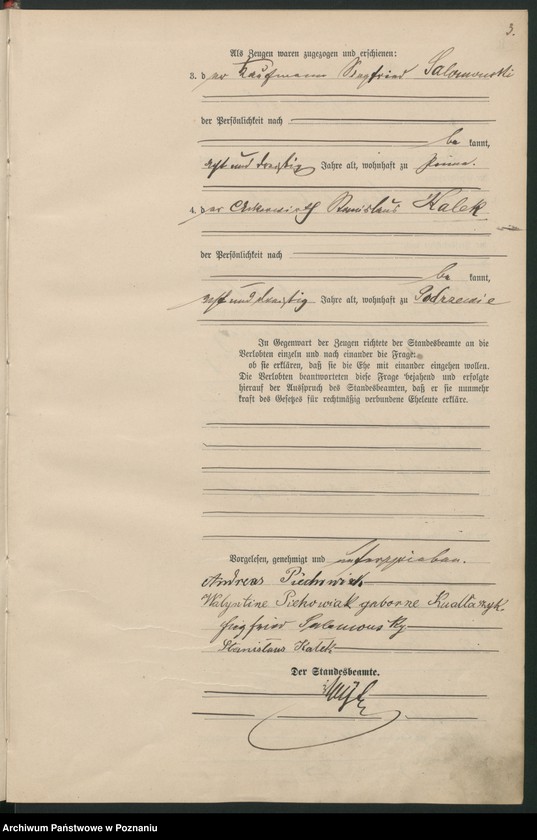 3.
Als Zeugen waren zugezogen und erschienen:
3. d er Kaufmann Siegfried Salomonski
der Persönlichkeit nach
be kannt,
acht und dreißig Jahre alt, wohnhaft zu
4. d er Ackerwirth Stanislaus Kalek
der Persönlichkeit nach
be kannt,
acht und dreißig Jahre alt, wohnhaft zu Podrzewie
In Gegenwart der Zeugen richtete der Standesbeamte an die
Verlobten einzeln und nach einander die Frage:
ob sie erklären, daß sie die Ehe mit einander eingehen wollen.
Die Verlobten beantworteten diese Frage bejahend und erfolgte
hierauf der Ausspruch des Standesbeamten, daß er sie nunmehr
kraft des Gesetzes für rechtmäßig verbundene Eheleute erkläre.
Vorgelesen, genehmigt und unterschrieben.
Andreas Piechowiak
Walyntine Piehowiak geborne
Siegfried Salomonsky
Stanislaus Kalek
Der Standesbeamte.
Archiwum Państwowe w Poznaniu